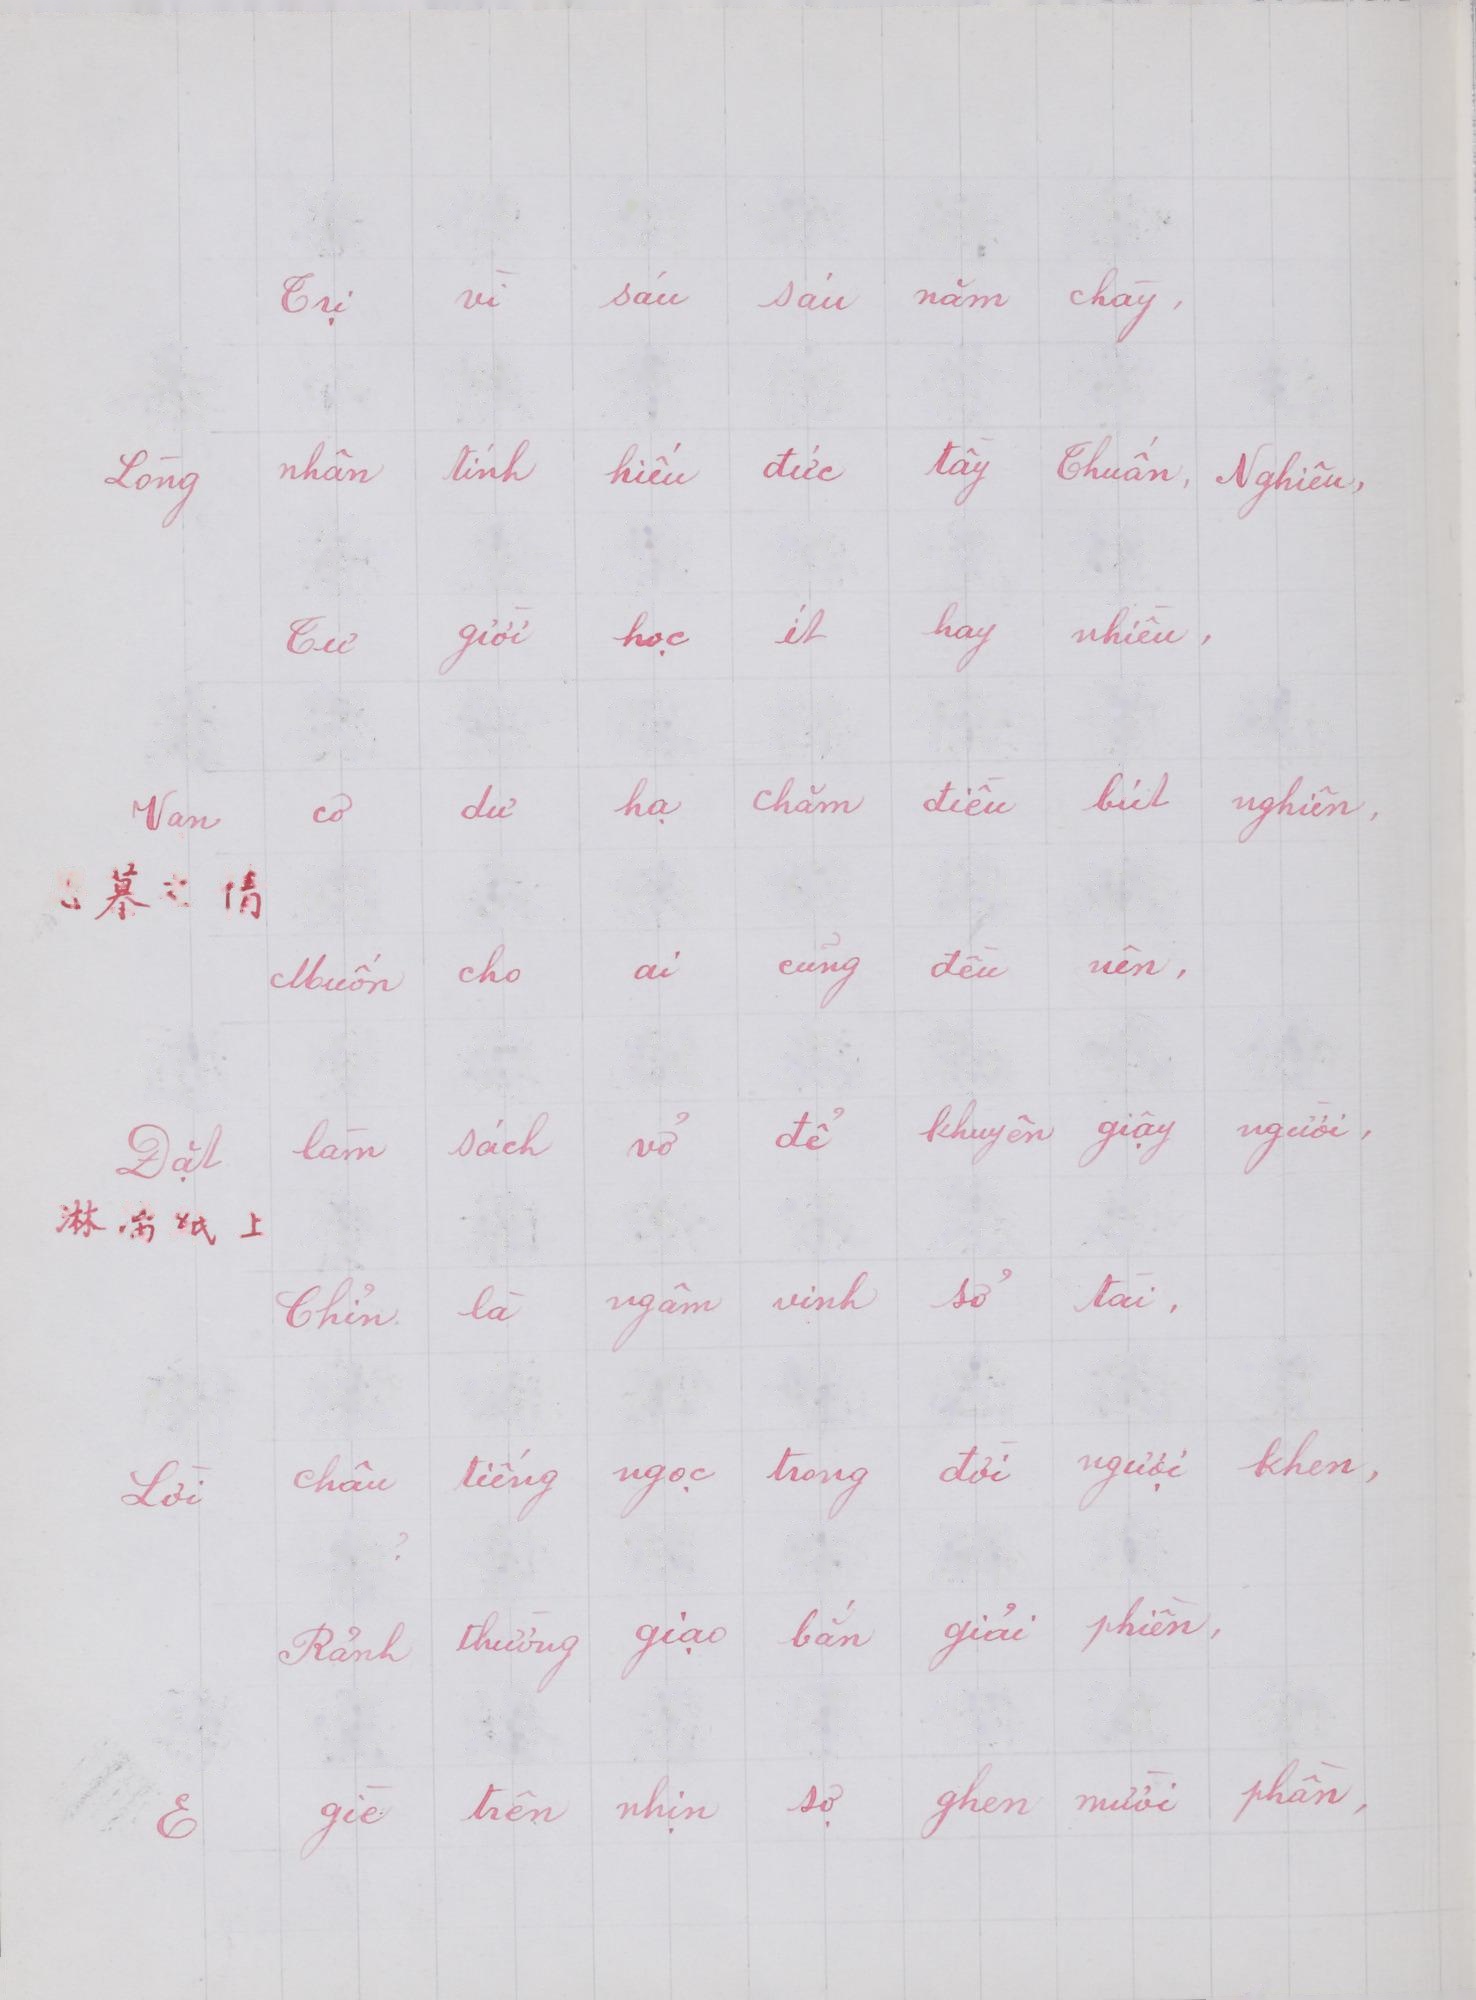 Trị vì sáu sáu năm chầy,
Lòng nhân tính hiếu đức tầy Thuấn, Nghiêu,
Tư giời học ít hay nhiều,
Vạn cơ dư hạ chăm điều bút nghiên,
慕之情
Muốn cho ai cũng đều nên,
Đặt làm sách vở để khuyên giậy người,
淋漓紙上
Chỉn là ngâm vinh sở tài,
Lời châu tiếng ngọc trong đời người khen,
Rảnh thường giạo bắn giải phiền,
E giè trên nhịn sợ ghen mười phần,